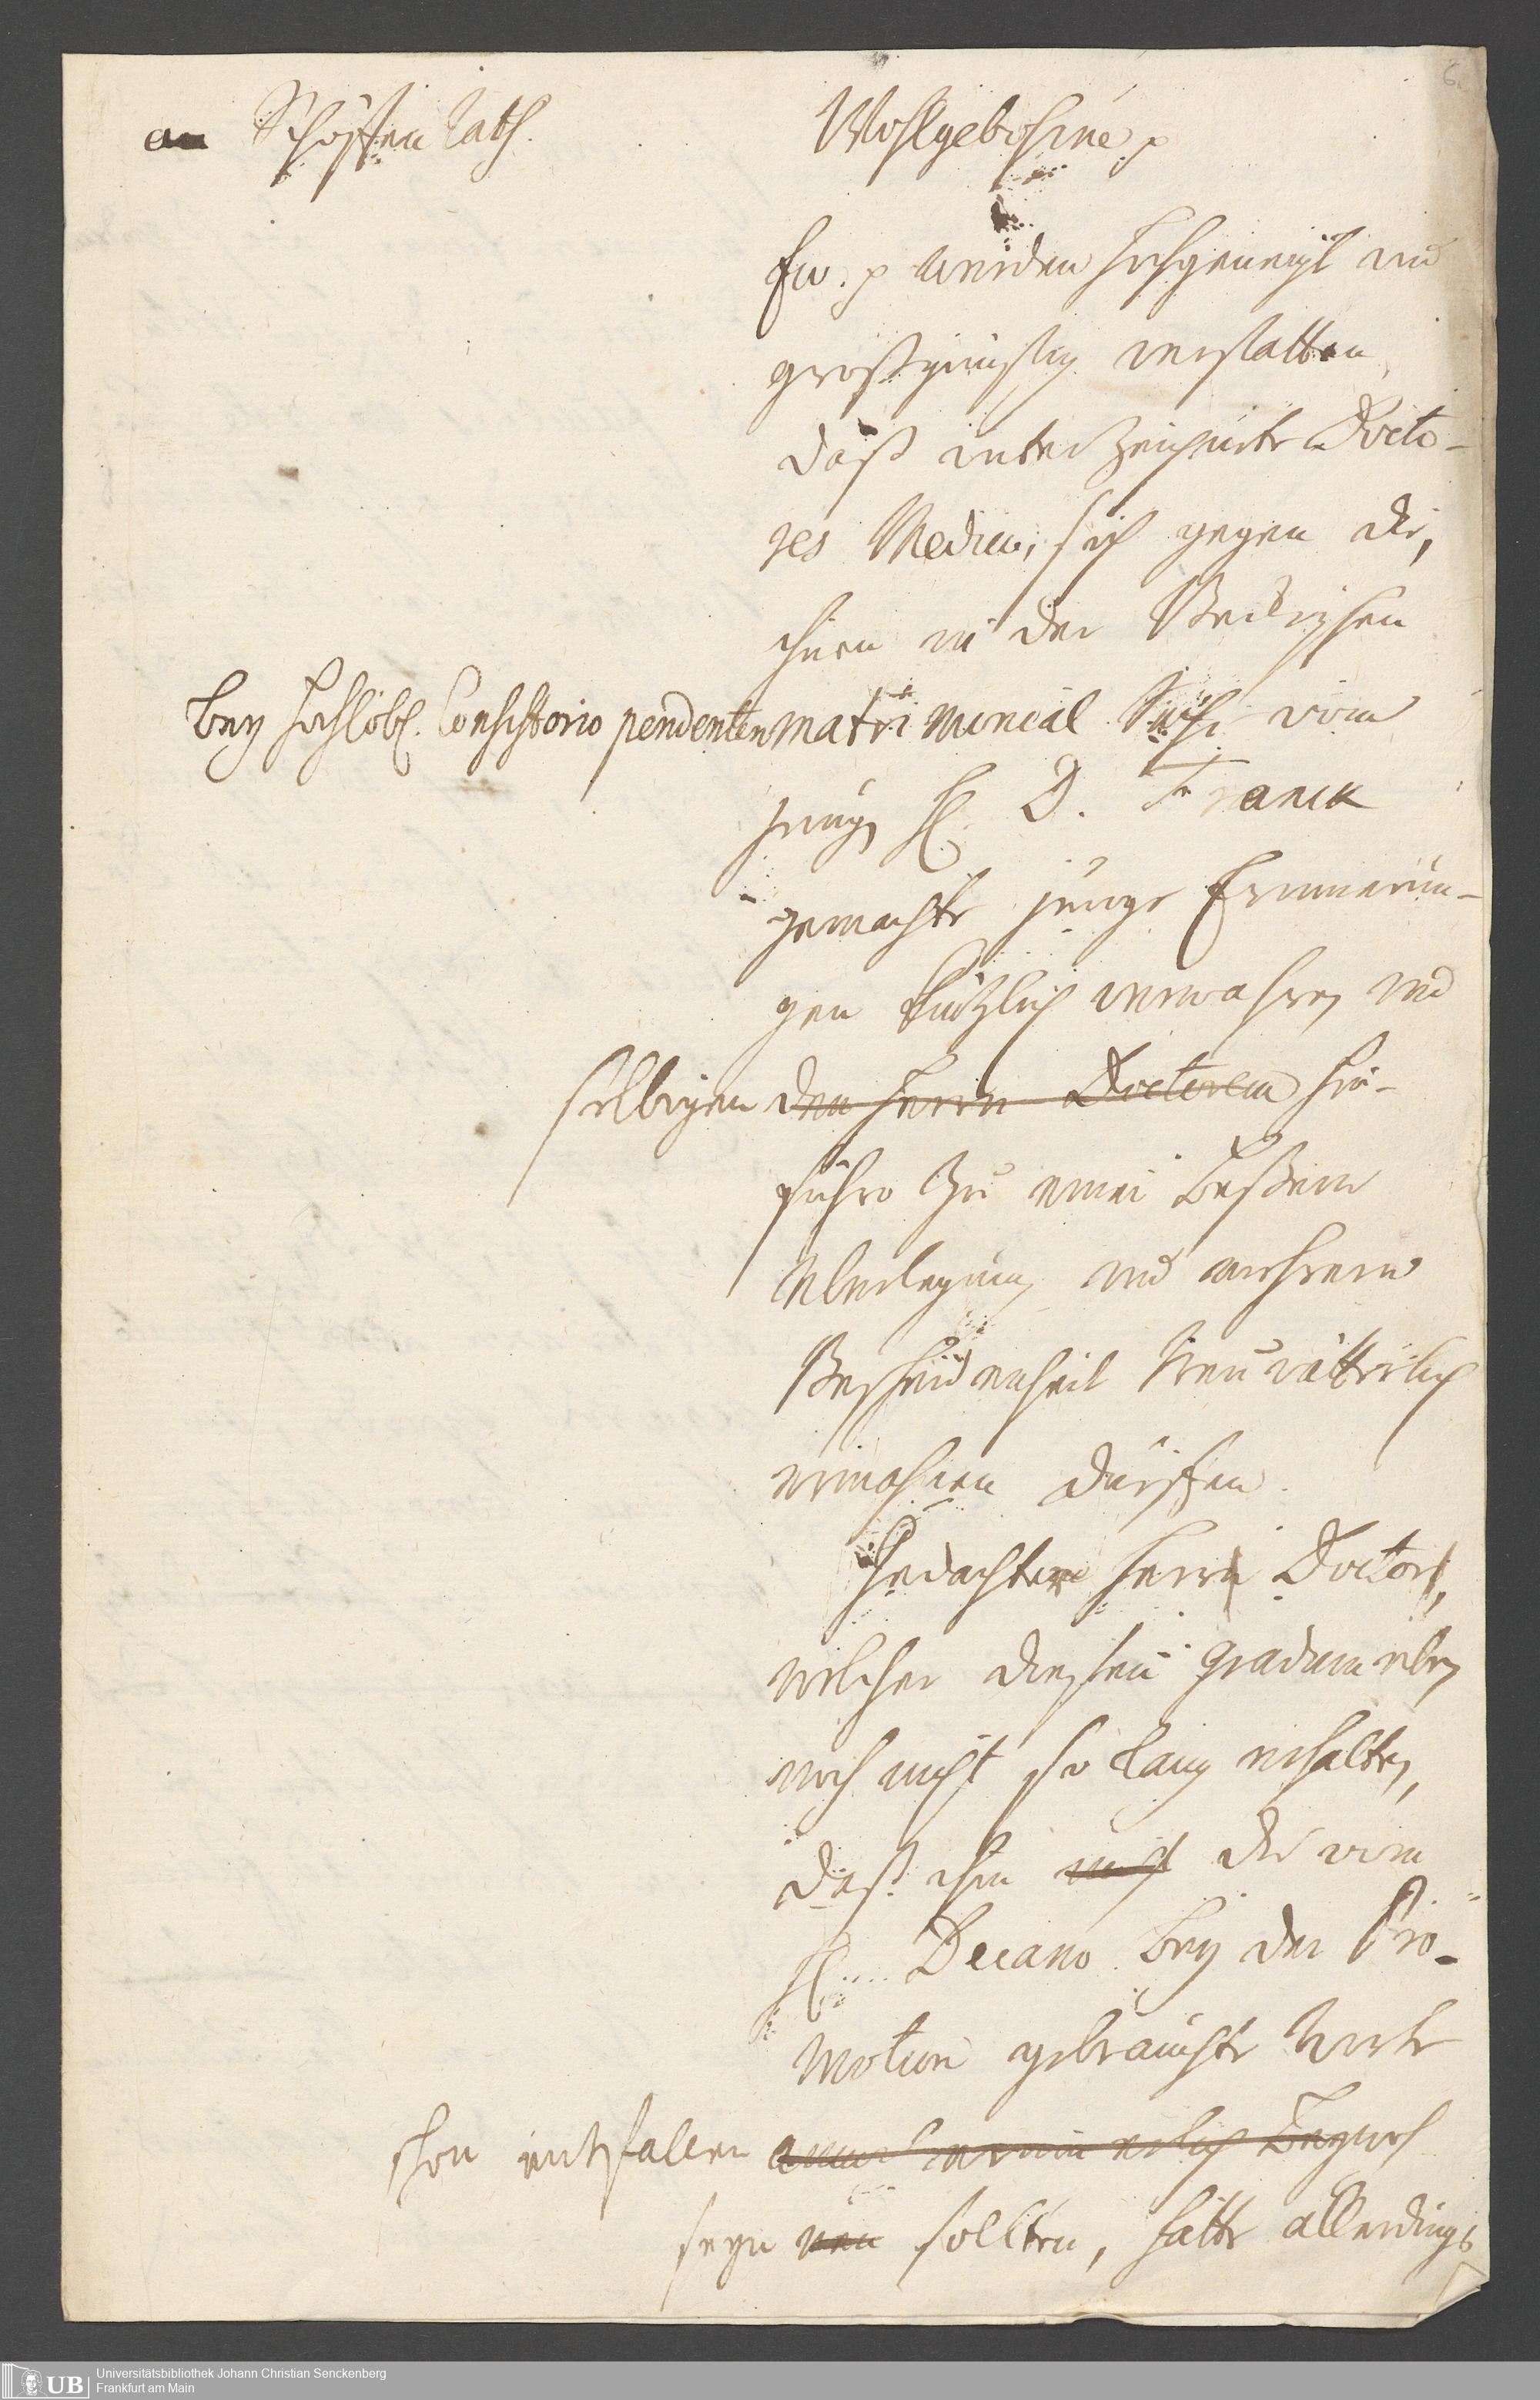 6.
an Schöffen Rath.
Wohlgebohrne p
Ew. p werden hochgeneigt und
großgünstig verstatten,
daß unterzeichnete Docto-
res Medici, sich gegen die,
ihnen in der
bey Hochlöbl. Consistorio pendenten matrimonial Sache vom
H. D. Franck
gemachte junge Erinnerun-
gen kürtzlich verwahren und
selbigen den Herrn Doctorem hin-
führo zu einer beßern
Überlegung und mehrern
Bescheidenheit treuvätterlich
ermahnen dürffen.
Gedachter Herr Doctor,
welcher diesen gradum eben
noch nicht so lang erhalten,
daß ihm nicht die vom
H. Decano bey der Pro-
motion gebrauchte Worte
schon entfallen
seyn sollten, hätte allerdings
UB Universitätsbibliothek Johann Christian Senckenberg
Frankfurt am Main